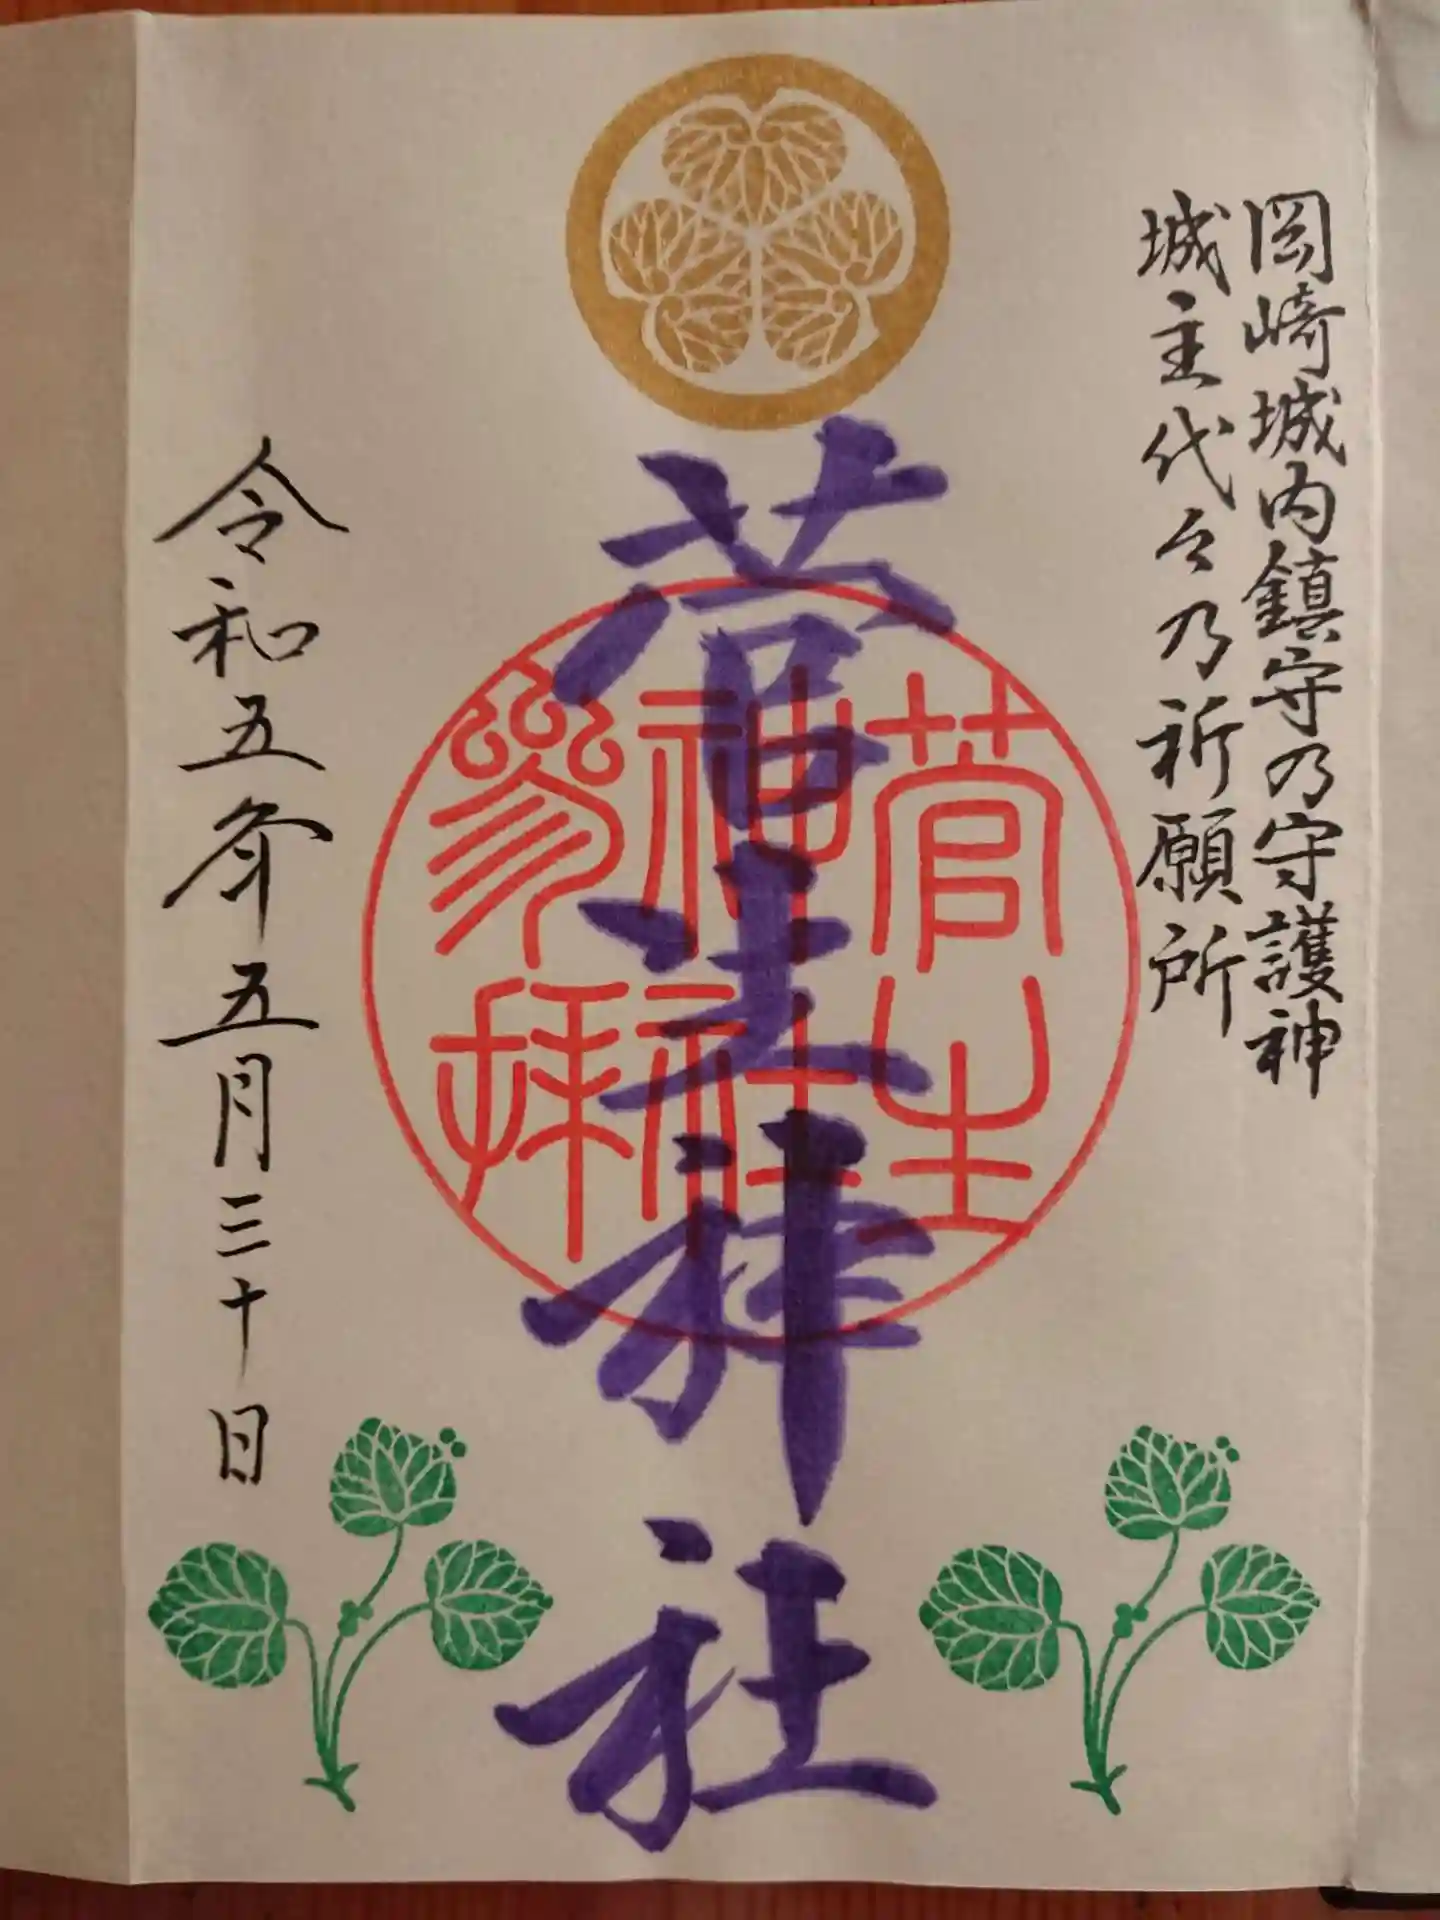 岡崎城内鎮守乃守護神
城主代々乃祈願所
菅生神社
菅生
神社
参拝
令和五年五月三十日